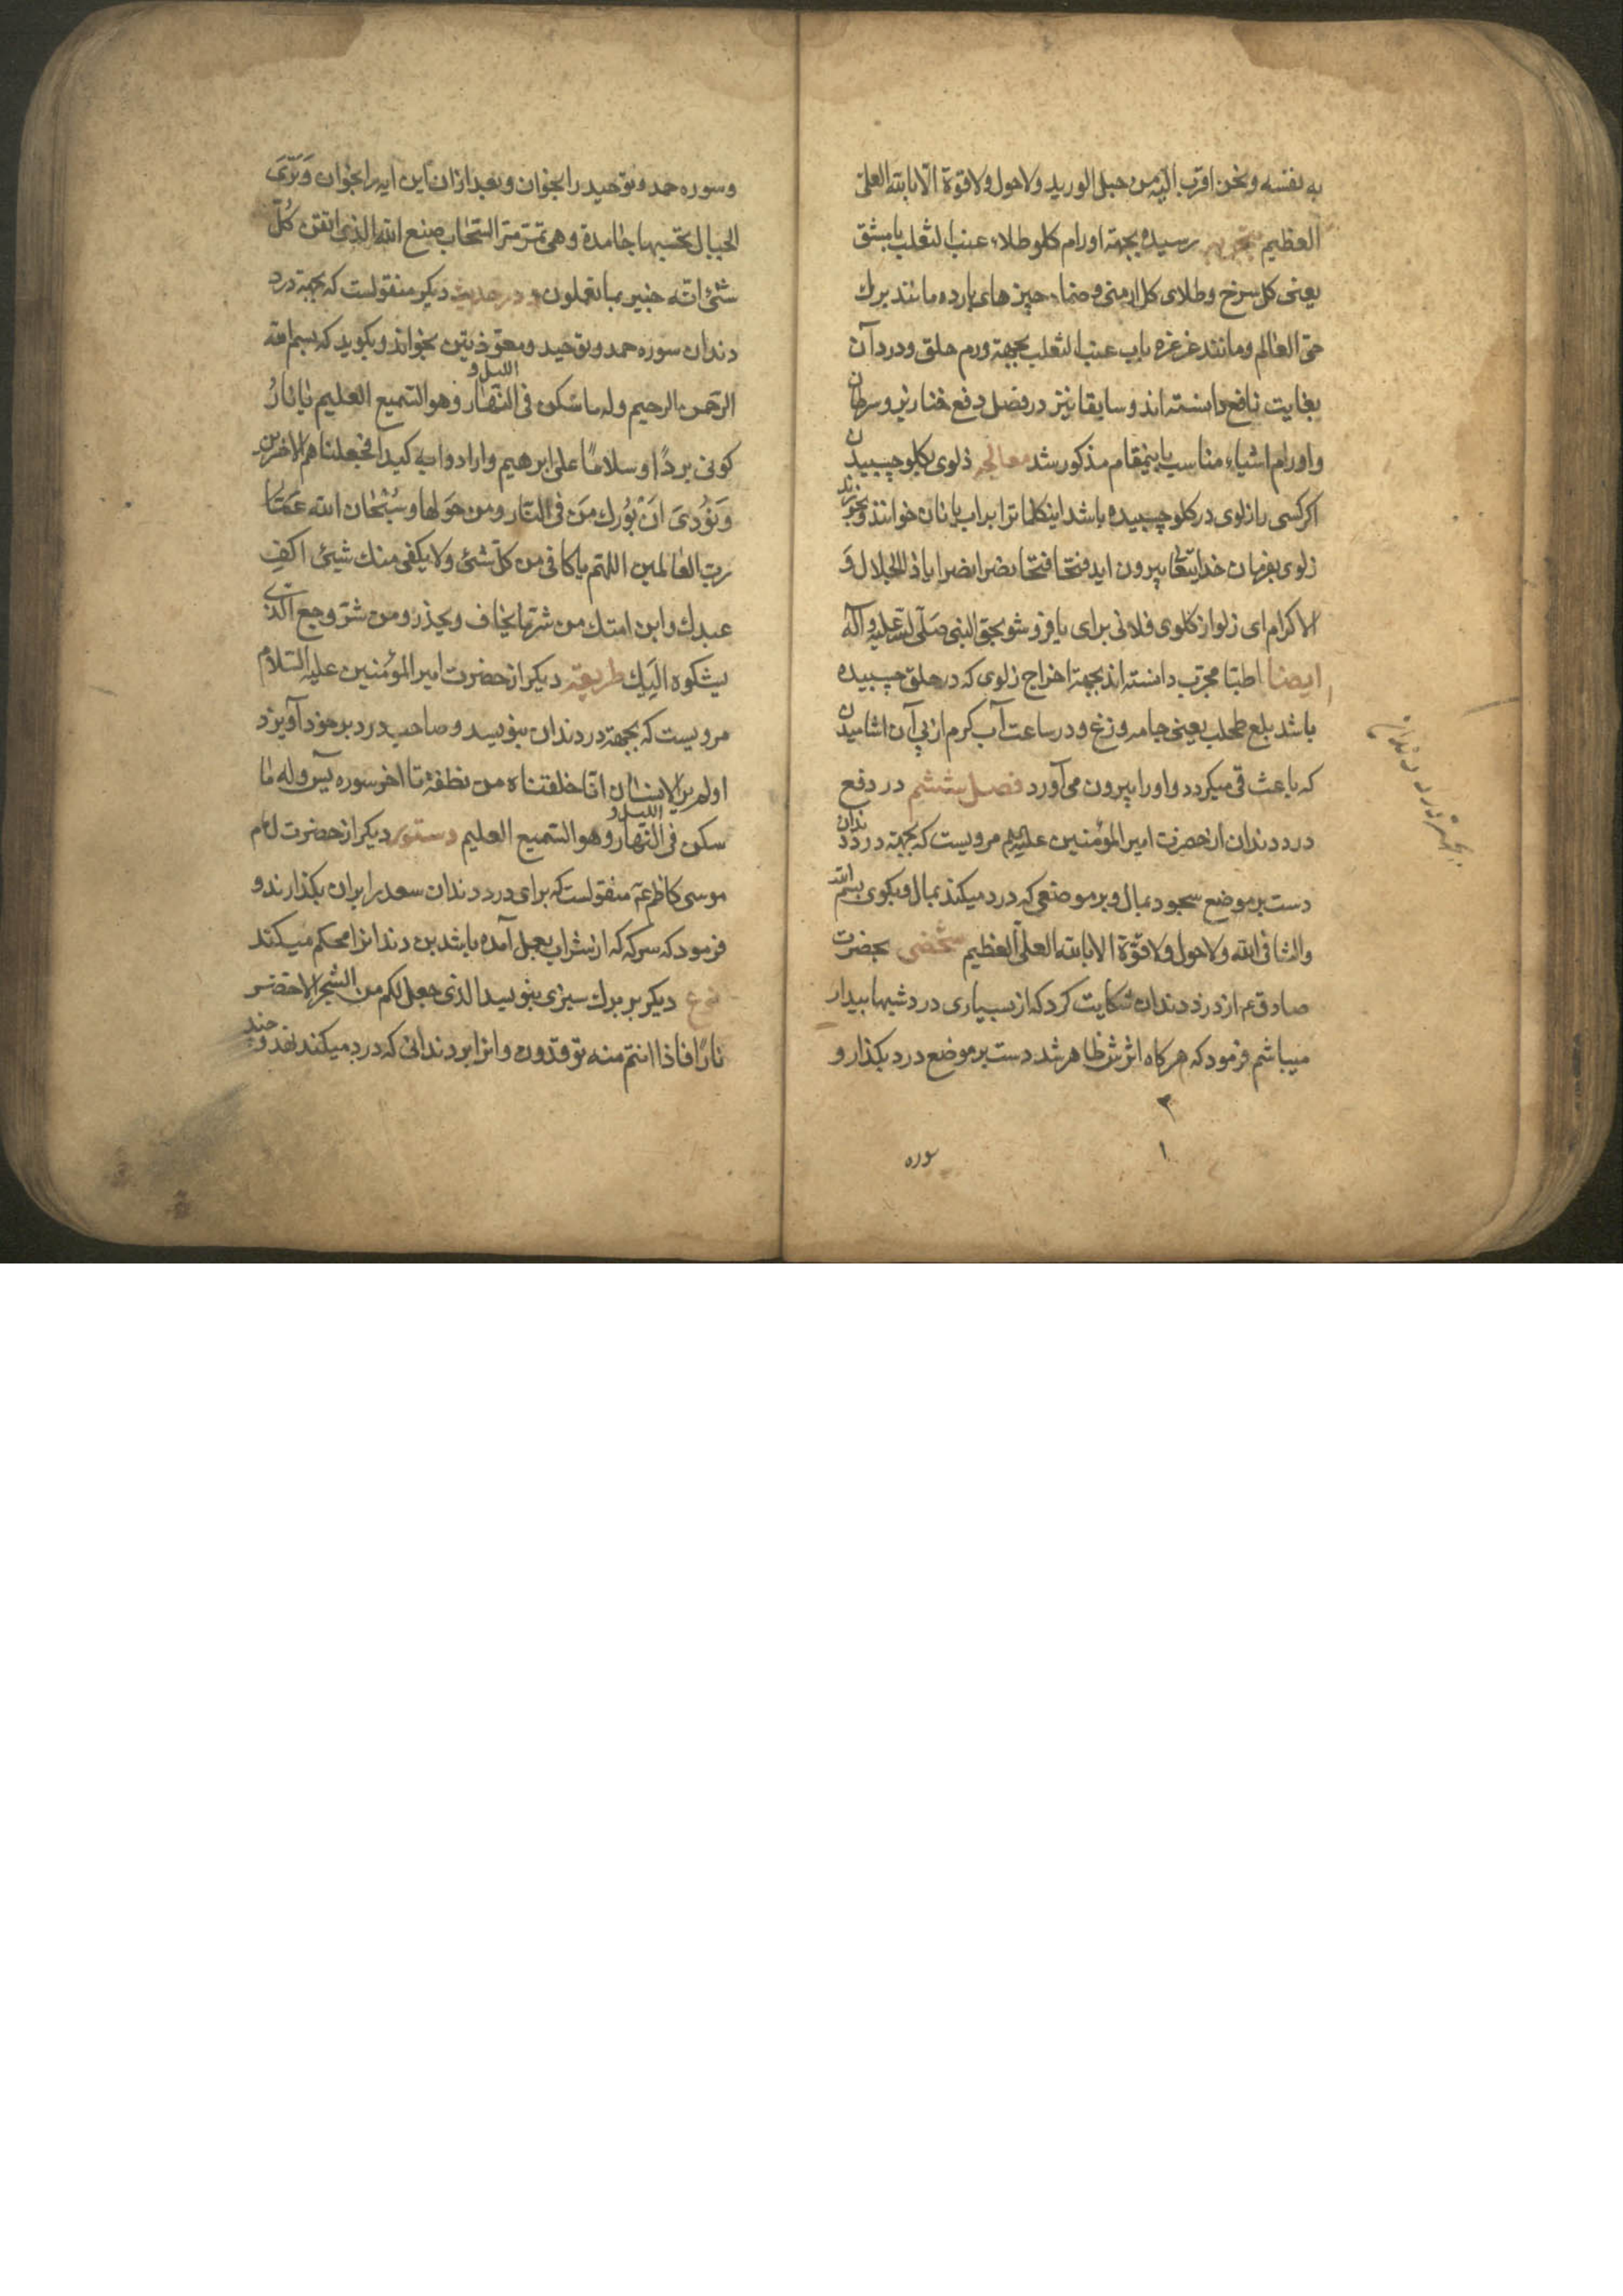 به نفسه ونحن اقرب الیه من حبل الورید ولاحول ولاقوة الا بالله العلی
العظیم بتجربه رسیده بجهة اورام کلو طلاء عنب الثعلب یا مشق
یعنی کل سرخ وطلای کل ارمنی وضماد چیزهای بارده مانند برك
حی العالم ومانند غرغره باب عنب الثعلب بجهة ورم حلق ودرد آن
بغایت نافع دانسته اند وسابقا نیز در فصل دفع خنازیر وسرطان
واورام اشیاء مناسب باینمقام مذکور شد معالجه زلوی بکلو چسبیدن
اکر کسی را زلوی در کلو چسبیده باشد اینکلماترا بر اب یا نان خوانند وبخورند
زلوی بفرمان خدایتعالی بیرون اید فتحا فتحا نصرا نصرا یا ذا الجلال و
الاکرام ای زلو از کلوی فلانی برای یا فرو شو بحق النبی صلی الله علیه وآله
ایضا اطبا مجرب دانسته اند بجهة اخراج زلوی که در حلق چسبیده
باشد بلع طحلب یعنی جامه وزغ ودر ساعت آب کرم از پی آن اشامیدن
که باعث قی میکردد واورا بیرون می آورد فصل ششم در دفع
درد دندان از حضرت امیر المؤمنین علیه مرویست که بجهة درد دندان
دست بر موضع سجود بمال وبر موضعی که درد میکند بمال وبکوی بسم الله
والشافی الله ولاحول ولاقوة الا بالله العلی العظیم شخصی بحضرت
صادق ع م از درد دندان شکایت کرد که از بسیاری درد شبها بیدار
میباشم فرمود که هرکاه اثرش ظاهر شد دست بر موضع درد بکذار و
۲
۱
سوره
وسوره حمد وتوحید را بخوان وبعد ازان این ایه را بخوان وَتَرَی
الجبال تحسبها جامدة وهی تمر مر السحاب صنع الله الذی اتقن کُلّ
شئ انه خبیر بما تفعلون ودر حدیث دیکر منقولست که بجهة درد
دندان سوره حمد وتوحید ومعوذیتین بخواند وبکوید که بسم الله
الرحمن الرحیم وله ما سکن فی اللیل و النهار وهو السمیع العلیم یا نارُ
کونی بردًا وسلامًا علی ابرهیم وارادوا به کیدا فجعلناهم الاخسرین
وَنُودِیَ اَنْ بُورك مَن فی النار ومن حَولها وسُبْحٰان الله عَمّا
رب العالمین اللهم یا کافی من کل شئ ولا یکفی منك شیئ اکفِ
عبدك وابن امتك من شر ما یخاف ویحذر ومن شر وجع الذی
یشکوه الَیك طریقه دیکر از حضرت امیر المؤمنین علیه السلام
مرویست که بجهة درد دندان بنویسد وصاحب درد بر خود آویزد
اولم یر الانسان انا خلقناه من نطفة تا اخر سوره یس وله ما
سکن فی اللیل و النهار وهو السمیع العلیم دستور دیکر از حضرت امام
موسی کاظم ع م منقولست که برای درد دندان سعد را بران بکذارند و
فرمود که سرکه که از شراب بعمل آمده باشد بن دندانرا محکم میکند
نوع دیکر بر برك سبزی بنویسد الذی جعل لکم من الشجر الاخضر
نارًا فاذا انتم منه توقدون وانرا بر دندانی که درد میکند نهد و چند